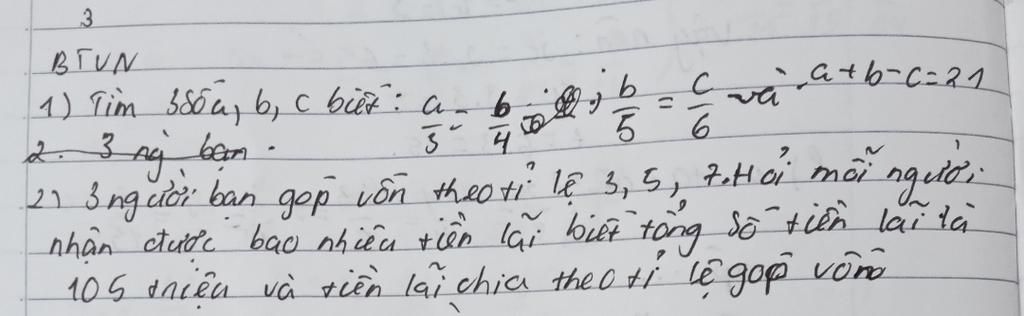 3
BTVN
1) Tìm 3 số a, b, c biết: a/3 = b/4 ; b/5 = c/6 và a + b - c = 21
2. 3 ng bạn.
2) 3 người bạn góp vốn theo tỉ lệ 3, 5, 7. Hỏi mỗi người
nhận được bao nhiêu tiền lãi biết tổng số tiền lãi là
105 triệu và tiền lãi chia theo tỉ lệ góp vốn